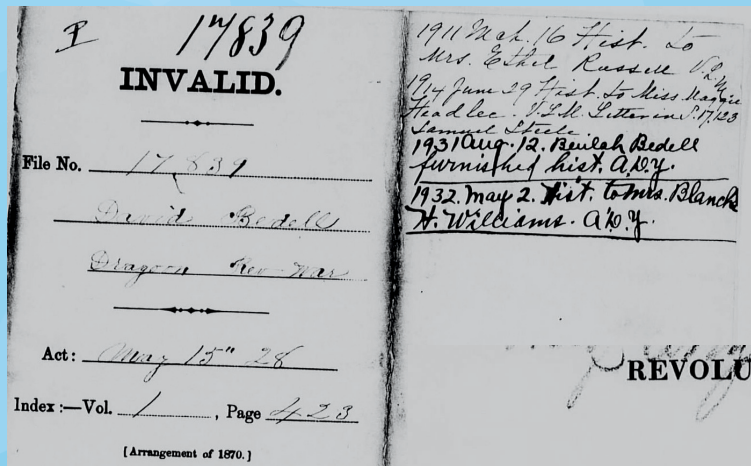 17839
INVALID.
File No. 17839
David Bedell
Dragoon Rev-War
Act: May 15" 28
Index:—Vol. 1, Page 423
[Arrangement of 1870.]
1911 Mch. 16 Hist. to
Mrs. Ethel Russell V.L.M.
1914 June 29 Hist. to Miss Maggie
Headlee. V.L.M. Letter in S. 17,123
Samuel Steele
1931 Aug. 12. Beulah Bedell
furnished hist. A.D.Y.
1932. May 2. Hist. to Mrs. Blanch
H. Williams. A.D.Y.
REVOLU